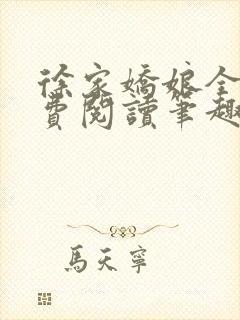 徐家嬌娘全
費閱讀筆趣
馬天寧